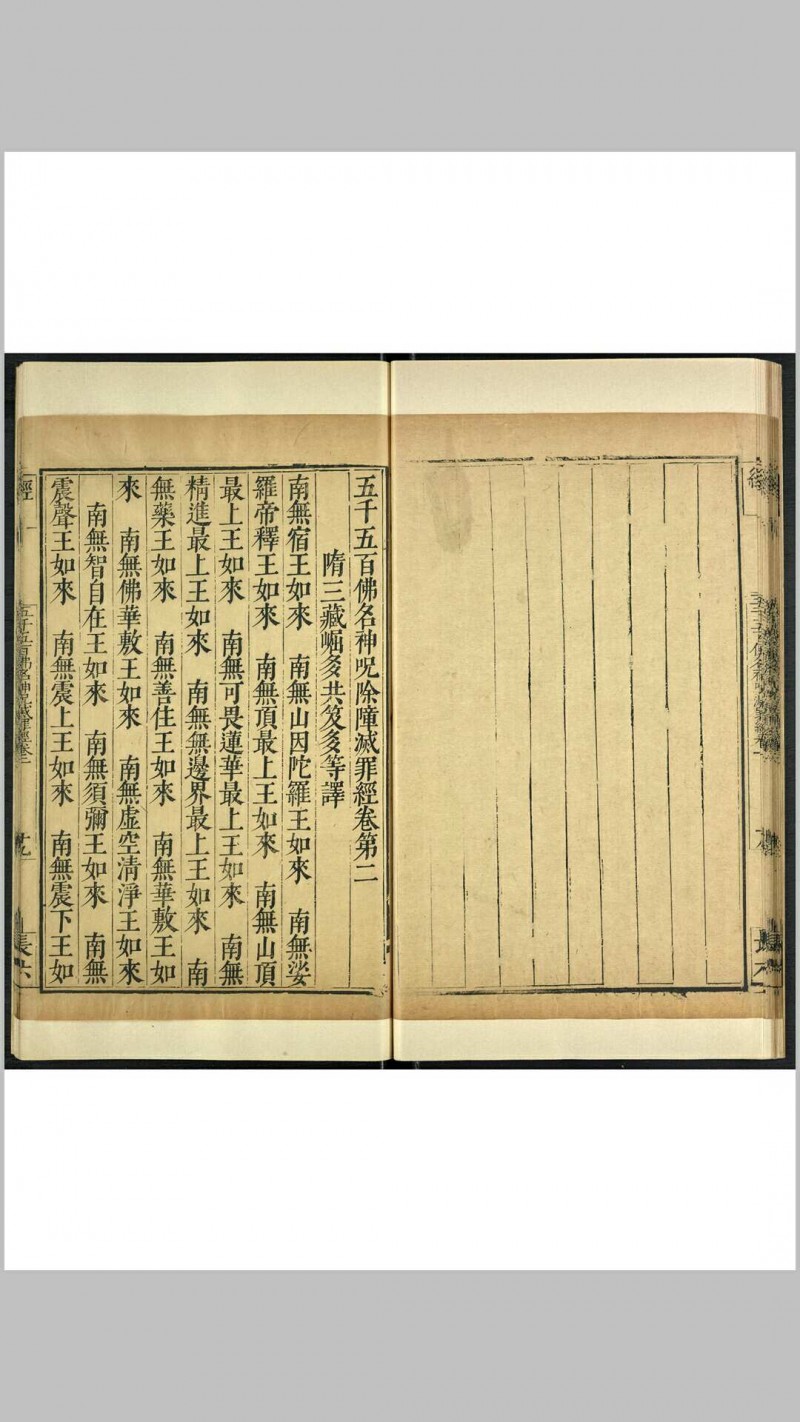 五千五百佛名神呪除障滅罪經卷第二
隋三藏崛多共笈多等譯
南無宿王如來　南無山因陀羅王如來　南無娑
羅帝釋王如來　南無頂最上王如來　南無山頂
最上王如來　南無可畏蓮華最上王如來　南無
精進最上王如來　南無無邊界最上王如來　南
無藥王如來　南無善住王如來　南無華敷王如
來　南無佛華敷王如來　南無虛空清淨王如來
南無智自在王如來　南無須彌王如來　南無
震聲王如來　南無震上王如來　南無震下王如
經